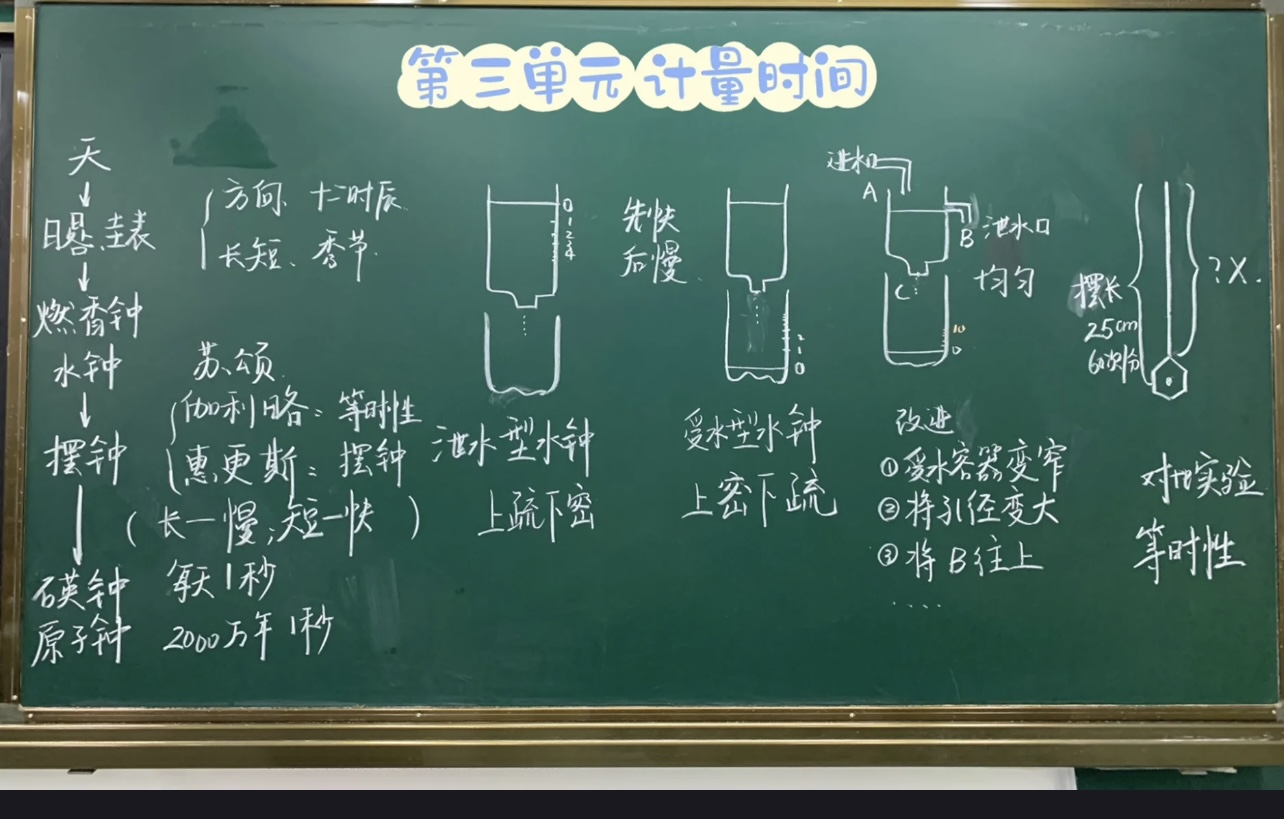 第三单元计量时间
天
日晷、圭表
方向、十二时辰
长短、季节
燃香钟
水钟
苏颂
摆钟
伽利略：等时性
惠更斯：摆钟
（长一慢；短一快）
石英钟
每天1秒
原子钟
2000万年1秒
0
1
2
3
4
泄水型水钟
上疏下密
先快
后慢
2
1
0
受水型水钟
上密下疏
进水口
A
B 泄水口
C
均匀
10
0
改进
①受水容器变窄
②将引径变大
③将B往上
....
摆长
25cm
60次/分
?X.
对比实验
等时性